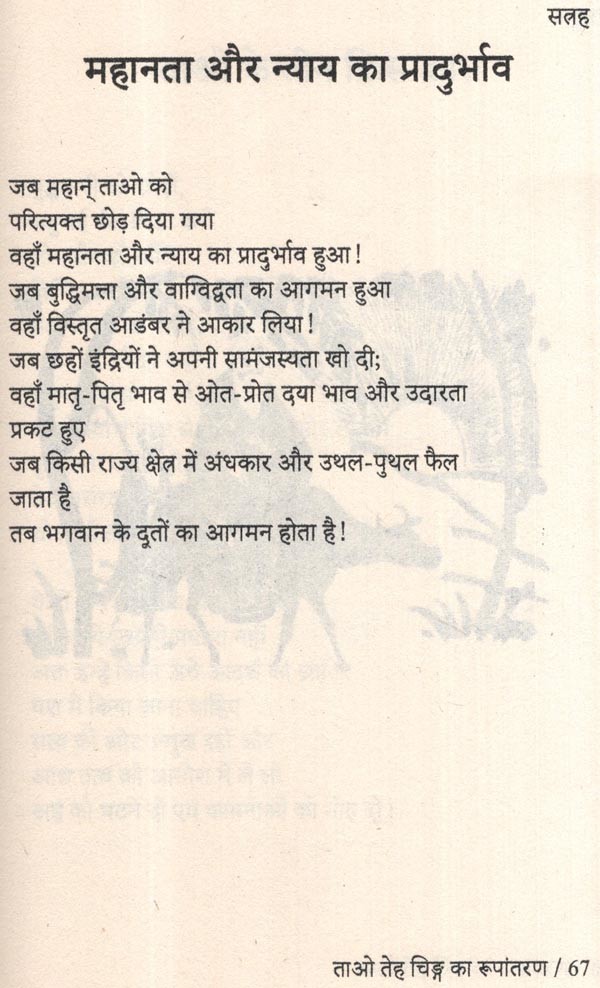 सत्रह
महानता और न्याय का प्रादुर्भाव
जब महान् ताओ को
परित्यक्त छोड़ दिया गया
वहाँ महानता और न्याय का प्रादुर्भाव हुआ!
जब बुद्धिमत्ता और वाग्विद्वता का आगमन हुआ
वहाँ विस्तृत आडंबर ने आकार लिया!
जब छहों इंद्रियों ने अपनी सामंजस्यता खो दी;
वहाँ मातृ-पितृ भाव से ओत-प्रोत दया भाव और उदारता
प्रकट हुए
जब किसी राज्य क्षेत्र में अंधकार और उथल-पुथल फैल
जाता है
तब भगवान के दूतों का आगमन होता है!
ताओ तेह चिङ्ग का रूपांतरण / 67